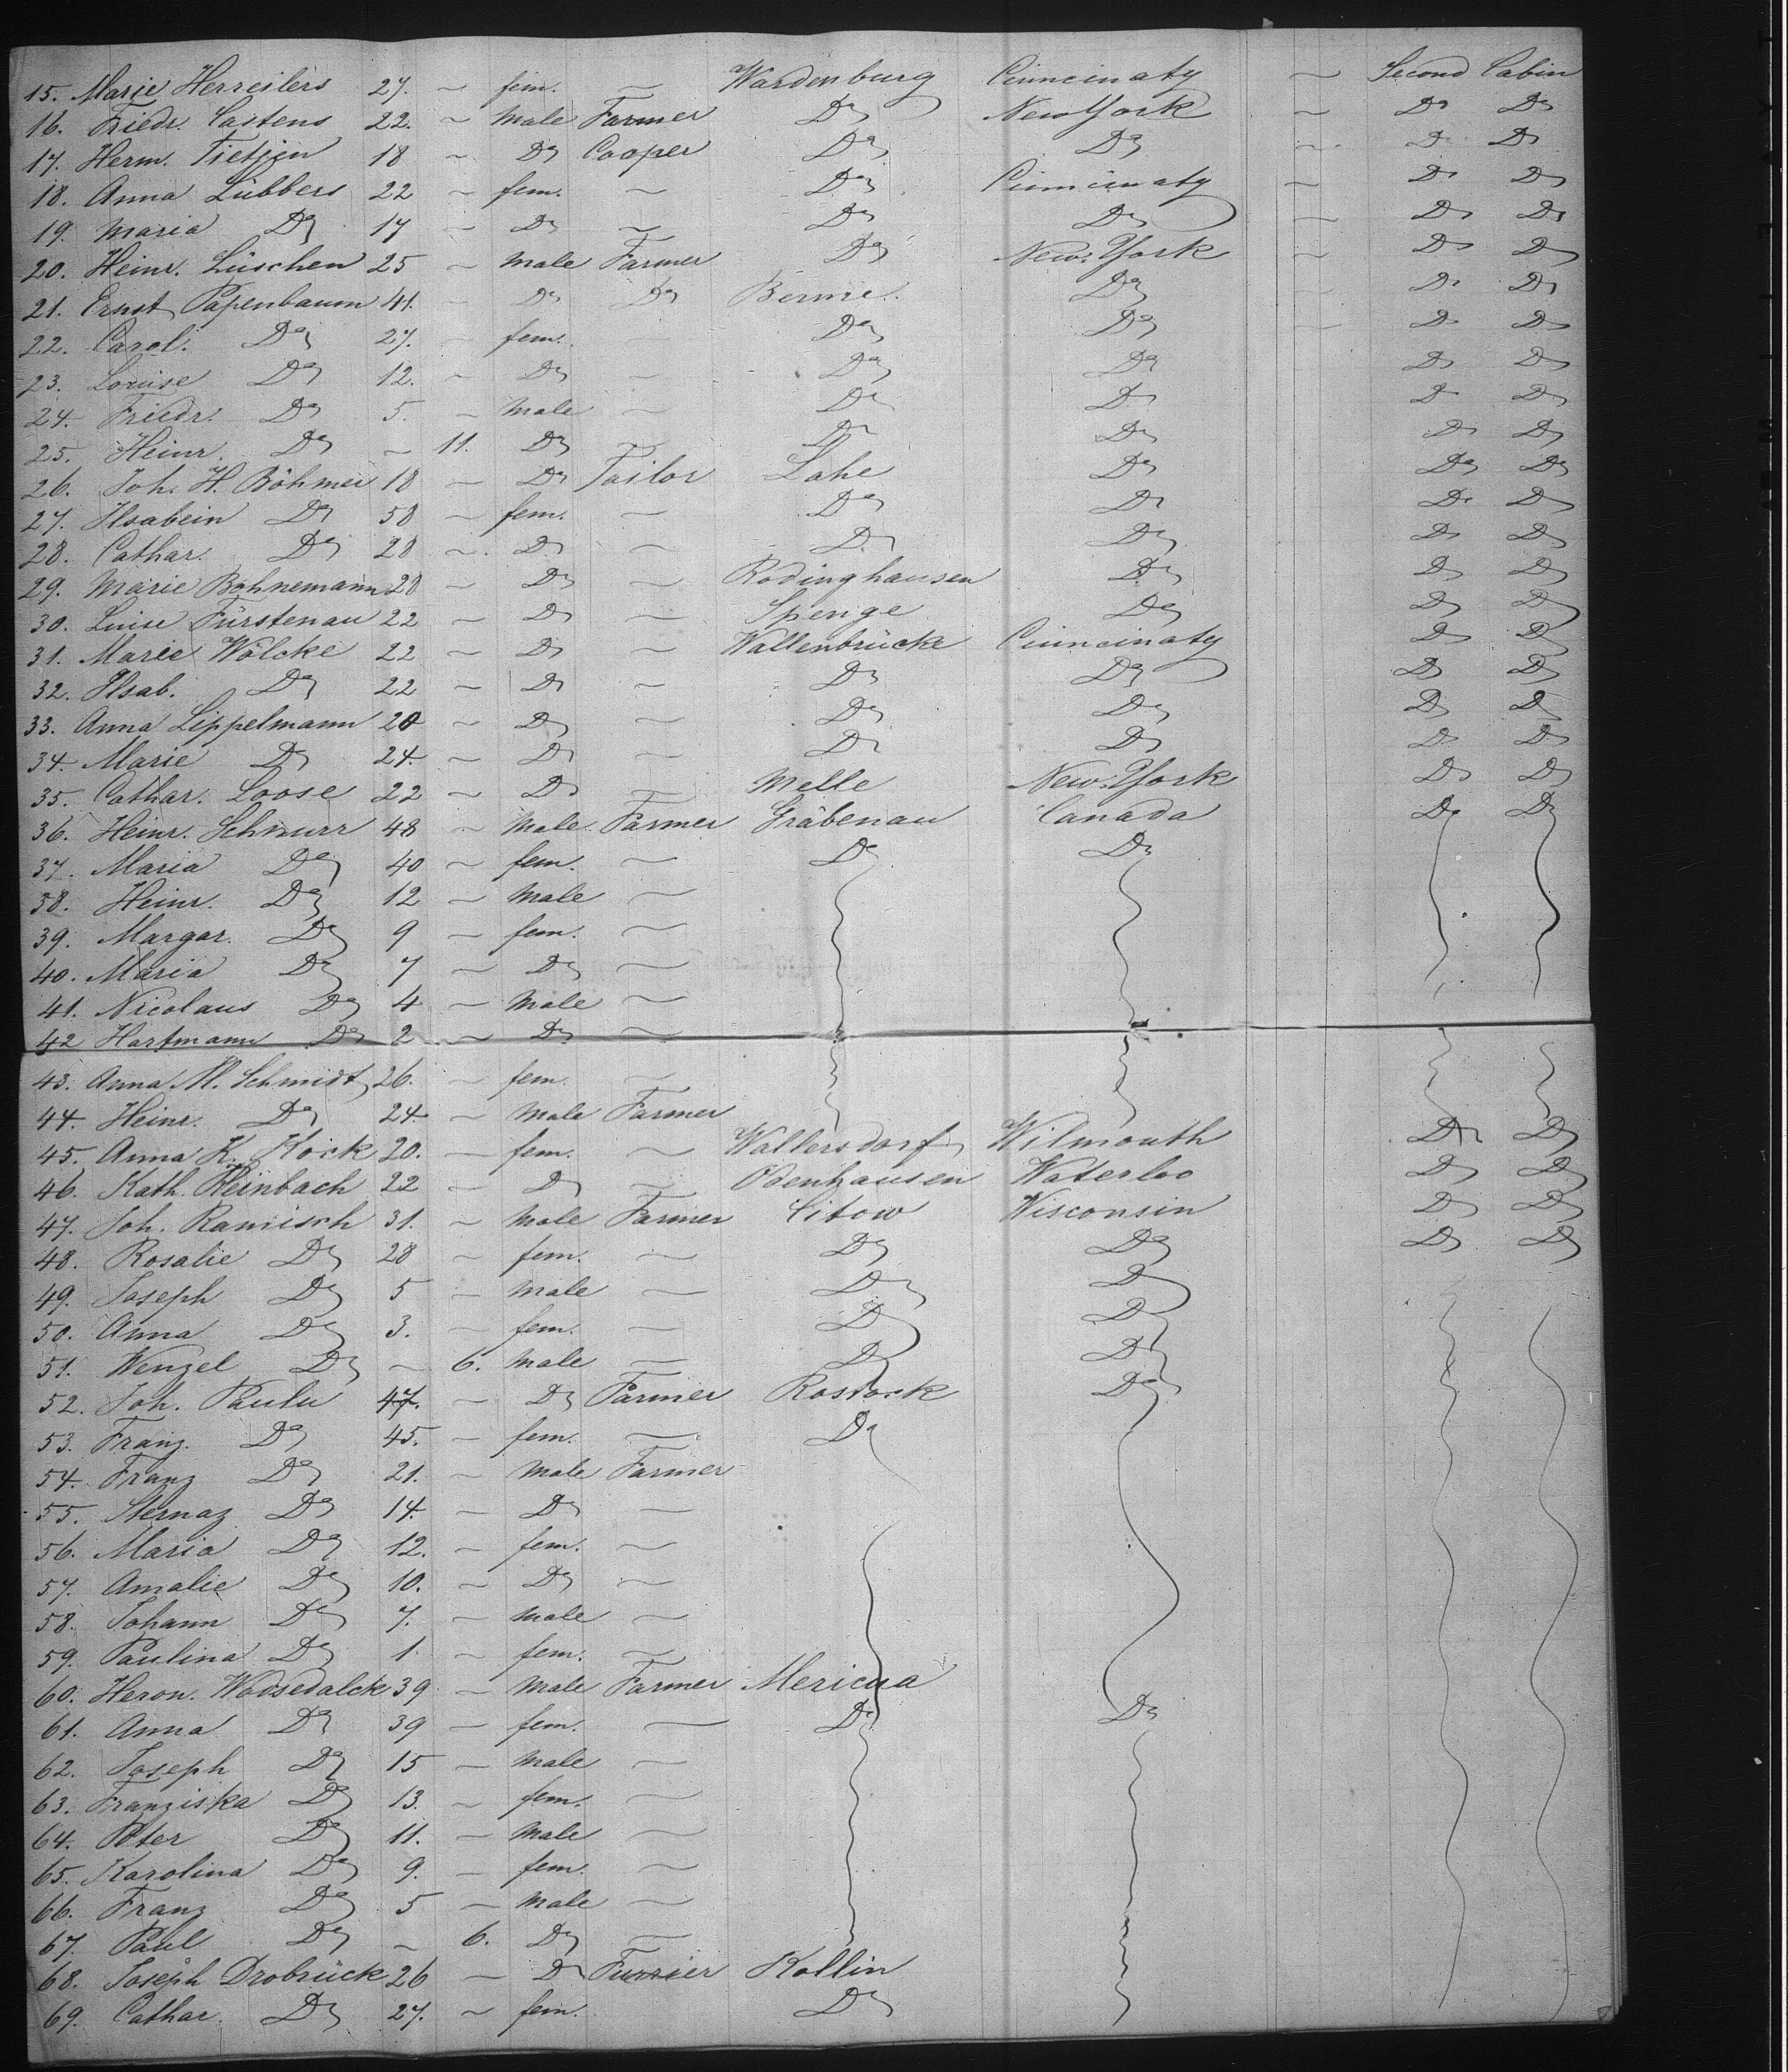 15. Marie Herreilers 27. ~ fem. ~ Wardenburg Cinncinaty ~ Second Cabin
16. Friedr. Castens 22. ~ Male Farmer Do New York ~ Do Do
17. Herm. Tietjen 18 ~ Do Cooper Do Do ~ Do Do
18. Anna Lübbers 22 ~ fem. ~ Do Cinncinaty ~ Do Do
19. Maria Do 17 ~ Do ~ Do Do ~ Do Do
20. Heinr. Lüschen 25 ~ Male Farmer Do New-York ~ Do Do
21. Ernst Papenbaum 41. ~ Do Do Berne. Do ~ Do Do
22. Carol. Do 27. ~ fem. ~ Do Do ~ Do Do
23. Louise Do 12. ~ Do ~ Do Do Do Do
24. Friedr. Do 5. ~ Male ~ Do Do Do Do
25. Heinr. Do ~ 11. Do Do Do Do Do
26. Joh. H. Böhmer 18 ~ Do Tailor Lahe Do Do Do
27. Ilsabein Do 58 ~ fem. ~ Do Do Do Do
28. Cathar. Do 28 ~ Do ~ Do Do Do Do
29. Marie Bohnemann 28 ~ Do ~ Rodinghausen Do Do Do
30. Luise Fürstenau 22 ~ Do ~ Spenge Do Do Do
31. Marie Wölcke 22 ~ Do ~ Wallenbrücke Cinncinaty Do Do
32. Ilsab. Do 22 ~ Do ~ Do Do Do Do
33. Anna Lippelmann 20 ~ Do ~ Do Do Do Do
34. Marie Do 24. ~ Do ~ Do Do Do Do
35. Cathar. Loose 22 ~ Do ~ Melle New-York Do Do
36. Heinr. Schnurr 48 ~ Male Farmer Gräbenau Canada Do Do
37. Maria Do 40 ~ fem. ~ Do Do
38. Heinr. Do 12 ~ Male ~
39. Margar. Do 9 ~ fem. ~
40. Maria Do 7 ~ Do ~
41. Nicolaus Do 4 ~ Male ~
42 Hartmann Do 2 ~ Do ~
43. Anna M. Schmidt 26. ~ fem. ~
44. Heinr. Do 24. ~ Male Farmer
45. Anna K. Kock 20. ~ fem. ~ Wallersdorf Wilmouth Do Do
46. Kath. Reinbach 22 ~ Do ~ Odenhausen Waterloo Do Do
47. Joh. Ramisch 31. ~ Male Farmer Citow Wisconsin Do Do
48. Rosalie Do 28 ~ fem. ~ Do Do Do Do
49. Joseph Do 5 ~ Male ~ Do Do
50. Anna Do 3. ~ fem. ~ Do Do
51. Wenzel Do ~ 6. Male ~ Do Do
52. Joh. Paulu 47. ~ Do Farmer Rostock Do
53. Franz. Do 45. ~ fem. ~ Do
54. Franz Do 21. ~ Male Farmer
55. Do 14. ~ Do ~
56. Maria Do 12. ~ fem. ~
57. Amalie Do 10. ~ Do ~
58. Johann Do 7. ~ Male ~
59. Paulina Do 1 ~ fem. ~
60. Heron. Wodsedalck 39 ~ Male Farmer Mericna
61. Anna Do 39 ~ fem. ~ Do Do
62. Joseph Do 15 ~ Male ~
63. Franziska Do 13. ~ fem. ~
64. Peter Do 11. ~ Male ~
65. Karolina Do 9. ~ fem. ~
66. Franz Do 5 ~ Male ~
67. Paul Do ~ 6. Do ~
68. Joseph Drobrück 26 ~ Do Furrier Kollin
69. Cathar. Do 27. ~ fem. Do